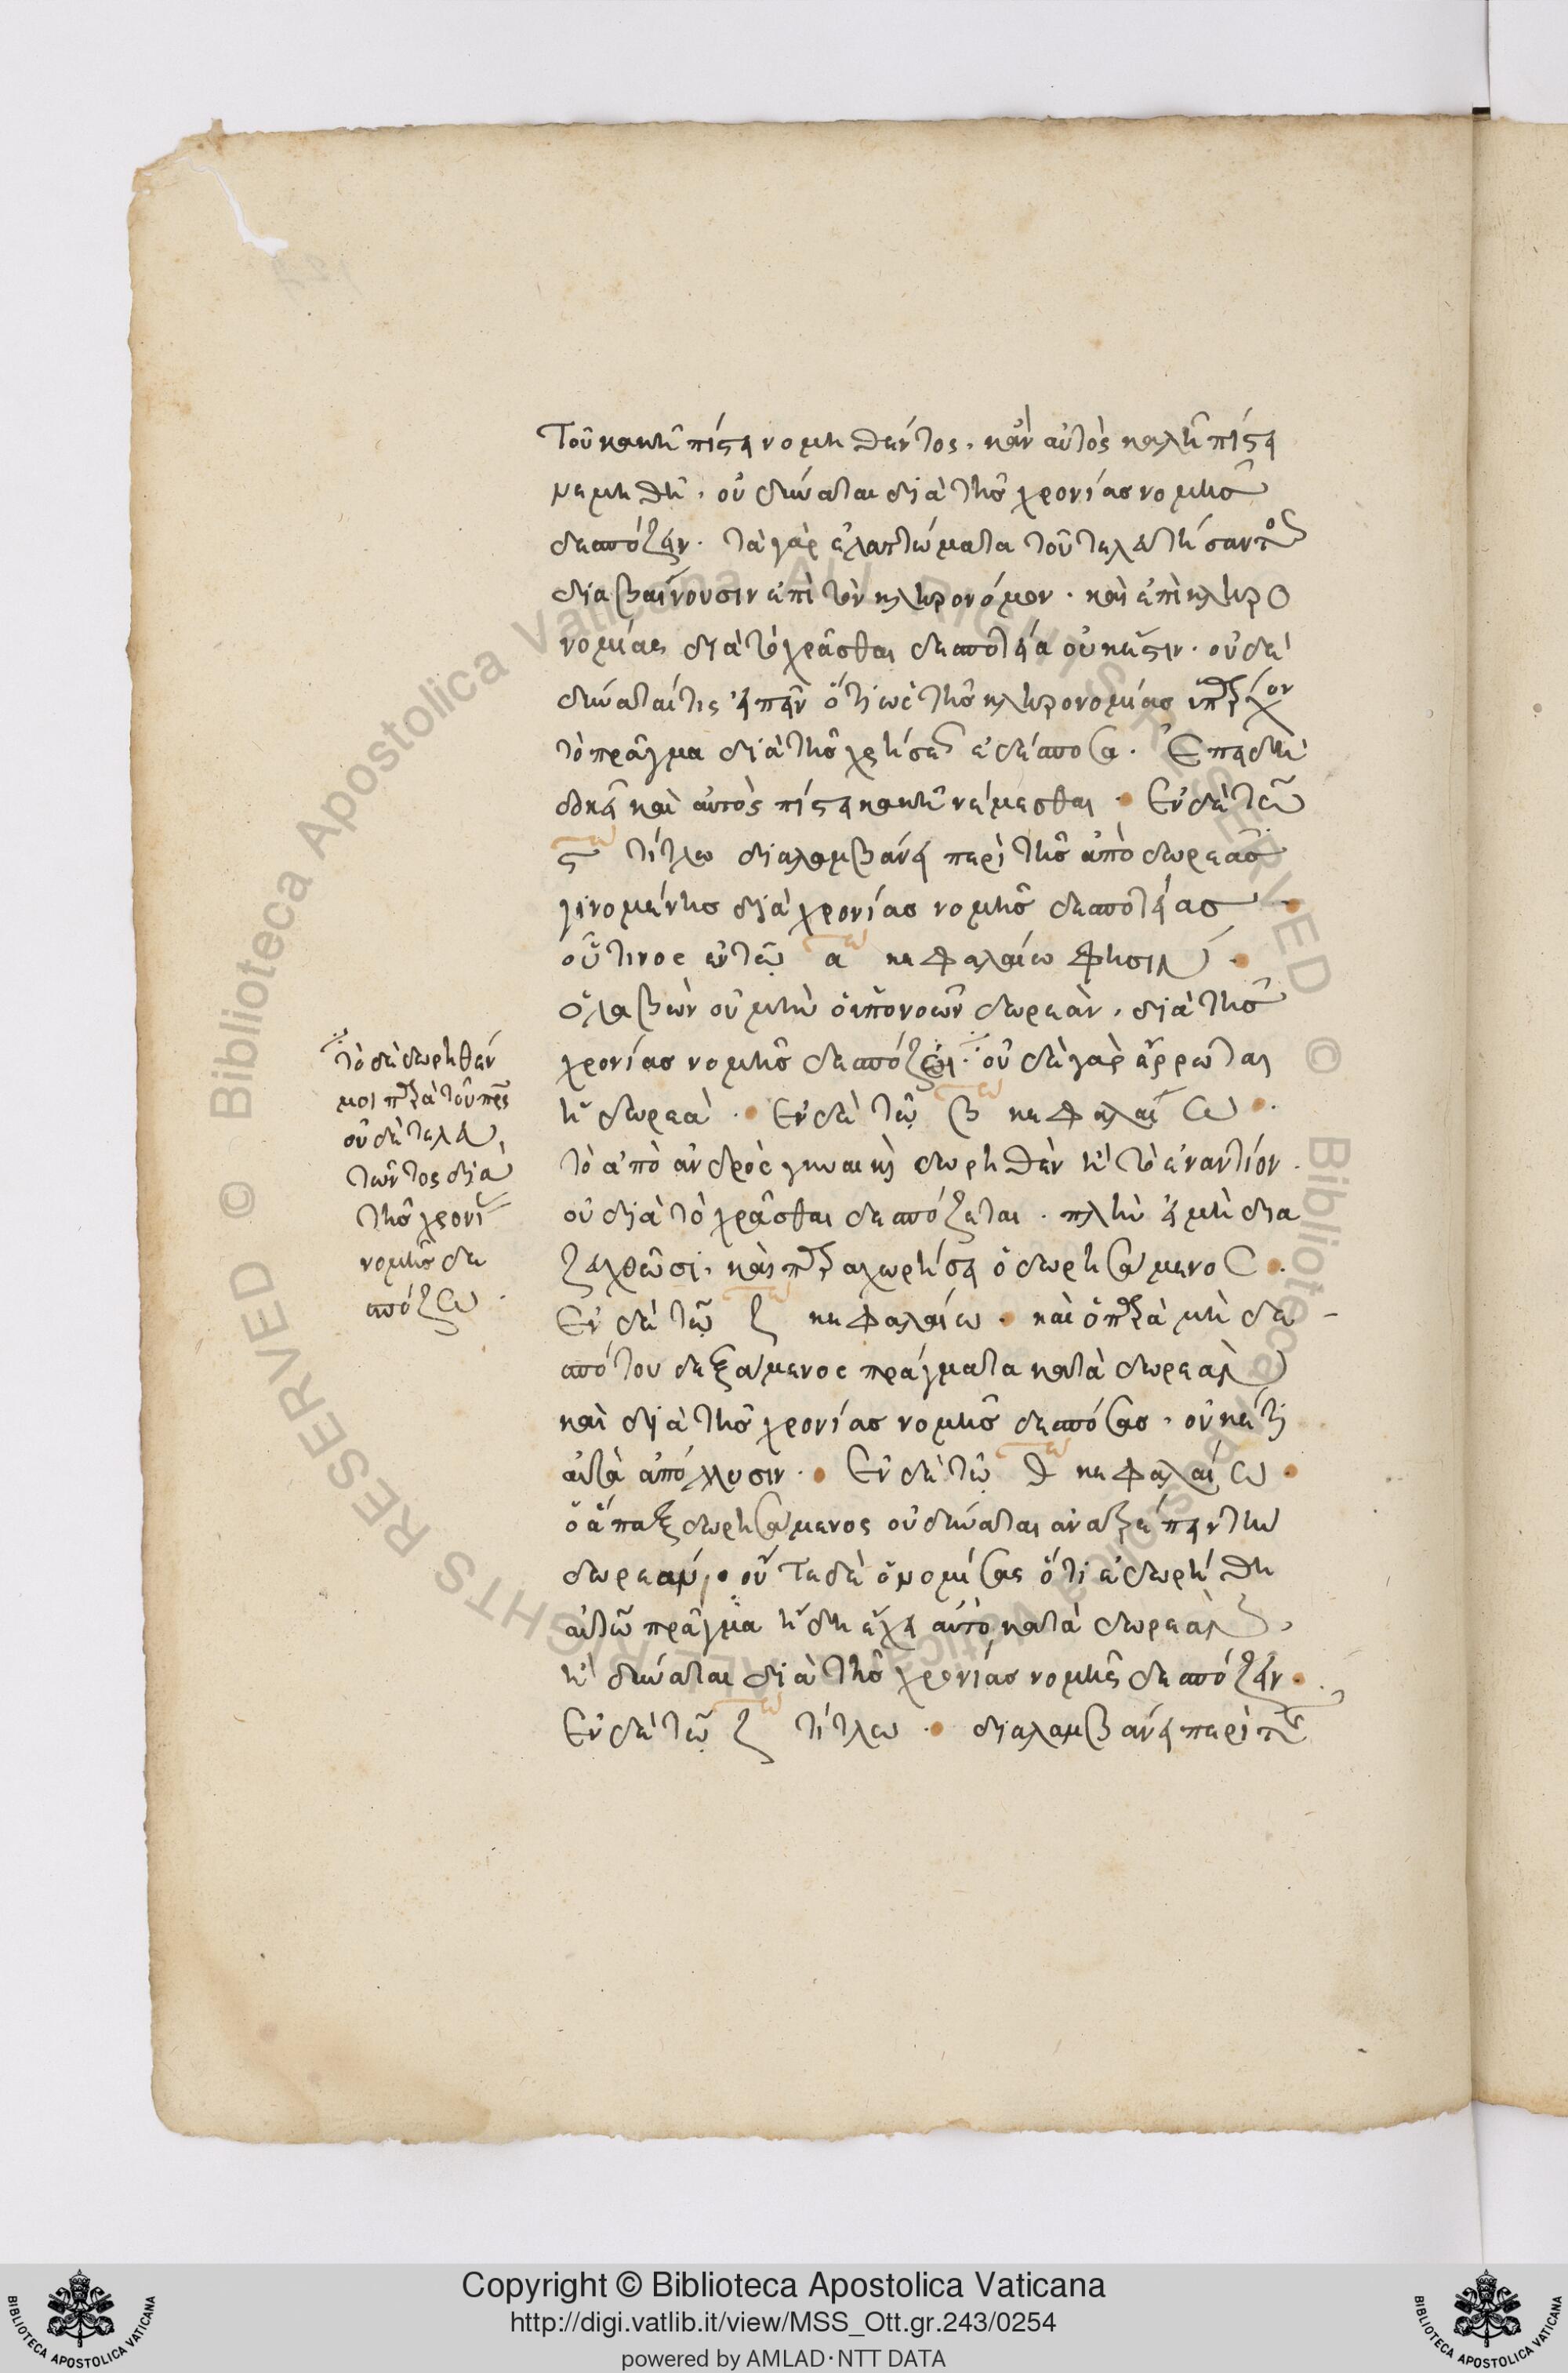 τοῦ κακῆ πίστει νομηθέντος. κἂν αὐτὸς καλῆ πίστει
νεμηθῆ. οὐ δύναται διὰ τῆς χρονίας νομῆς
δεσπόζειν. τὰ γὰρ ἐλαττώματα τοῦ τελευτήσαντος
διαβαίνουσιν ἐπὶ τὸν κληρονόμον. καὶ ἐπὶ κληρο
νομίας διὰ τὸ χρᾶσθαι δεσποτεία οὐκ ἔστιν. οὐδὲ
δύναταί τις εἰπεῖν ὅτι ὡς τῆς κληρονομίας ὑπάρχον
τὸ πρᾶγμα διὰ τῆς χρήσεως ἐδέσποσα. Ἐπειδὴ
δοκεῖ καὶ αὐτὸς πίστει κακῆ νέμεσθαι · Ἐν δὲ τῶ
ς^ω τίτλω διαλαμβάνει περὶ τῆς ἀπὸ δωρεᾶς
γινομένης διὰ χρονίας νομῆς δεσποτείας ·
οὗτινος ἐν τῶ α^ω κεφαλαίω φησιν ·
ὁ λαβὼν οὐ μὴν ὁ ὑπονοῶν δωρεὰν, διὰ τῆς
χρονίας νομῆς δεσπόζει. οὐδὲ γὰρ ἔρρωται
ἡ δωρεά · Ἐν δὲ τῶ β^ω κεφαλαίω ·
τὸ ἀπὸ ἀνδρὸς γυναικὶ δωρηθὲν ἢ τὸ ἐναντίον.
οὐ διὰ τὸ χρᾶσθαι δεσπόζεται. πλὴν εἰ μὴ δια
ζευχθῶσι, καὶ παραχωρήσει ὁ δωρησάμενος ·
Ἐν δὲ τῶ ζ^ω κεφαλαίω · καὶ ὁ παρὰ μὴ δε -
σπότου δεξάμενος πράγματα κατὰ δωρεὰν
καὶ διὰ τῆς χρονίας νομῆς δεσπόσας, οὐκέτι
αὐτὰ ἀπόλλυσιν · Ἐν δὲ τῶ θ^ω κεφαλαίω ·
ὁ ἅπαξ δωρησάμενος οὐ δύναται ἀνατρέπειν τὴν
δωρεὰν · οὔτε δὲ ὁ νομίσας ὅτι ἐδωρήθη
αὐτῶ πρᾶγμα ἤδη ἔχει αὐτὸ κατὰ δωρεὰν,
ἢ δύναται διὰ τῆς χρονίας νομῆς δεσπόζειν ·
Ἐν δὲ τῶ ζ^ω τίτλω · διαλαμβάνει περὶ τῆς
τὸ δὲ δωρηθέν
μοι παρὰ τοῦ πατρὸς
οὐδὲ τελευ
τῶντος διὰ
τῆς χρονί
νομῆς δε
σπόζω.
Copyright © Biblioteca Apostolica Vaticana
http://digi.vatlib.it/view/MSS_Ott.gr.243/0254
powered by AMLAD·NTT DATA
BIBLIOTECA APOSTOLICA VATICANA
BIBLIOTECA APOSTOLICA VATICANA
© Biblioteca Apostolica Vaticana ALL RIGHTS RESERVED © Biblioteca Apostolica Vaticana ALL RIGHTS RESERVED